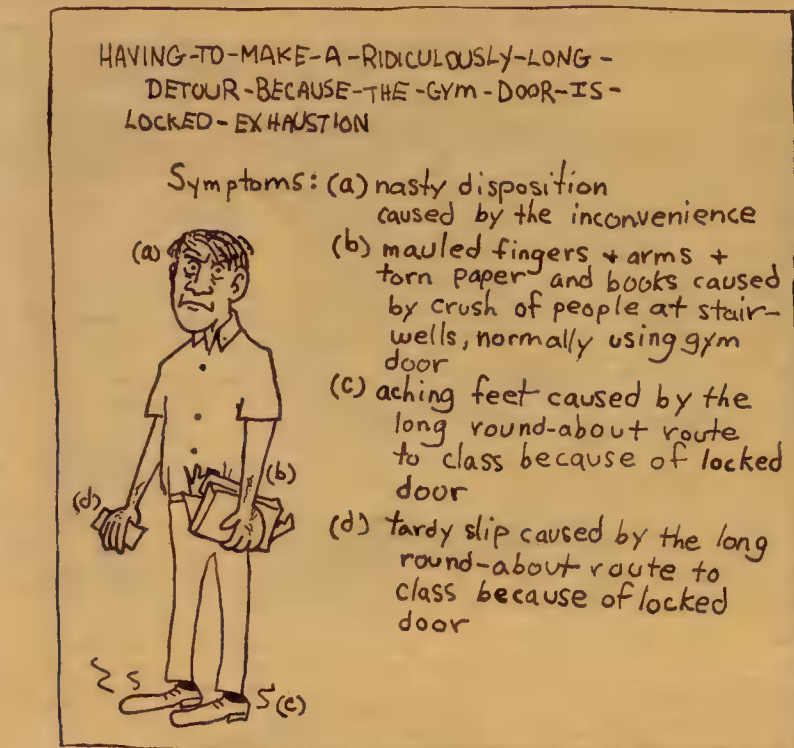 HAVING-TO-MAKE-A-RIDICULOUSLY-LONG-
DETOUR-BECAUSE-THE-GYM-DOOR-IS-
LOCKED-EXHAUSTION
Symptoms: (a) nasty disposition
caused by the inconvenience
(a)
(b) mauled fingers + arms +
torn paper and books caused
by crush of people at stair-
wells, normally using gym
door
(c) aching feet caused by the
long round-about route
to class because of locked
door
(b)
(d)
(d) tardy slip caused by the long
round-about route to
class because of locked
door
(c)